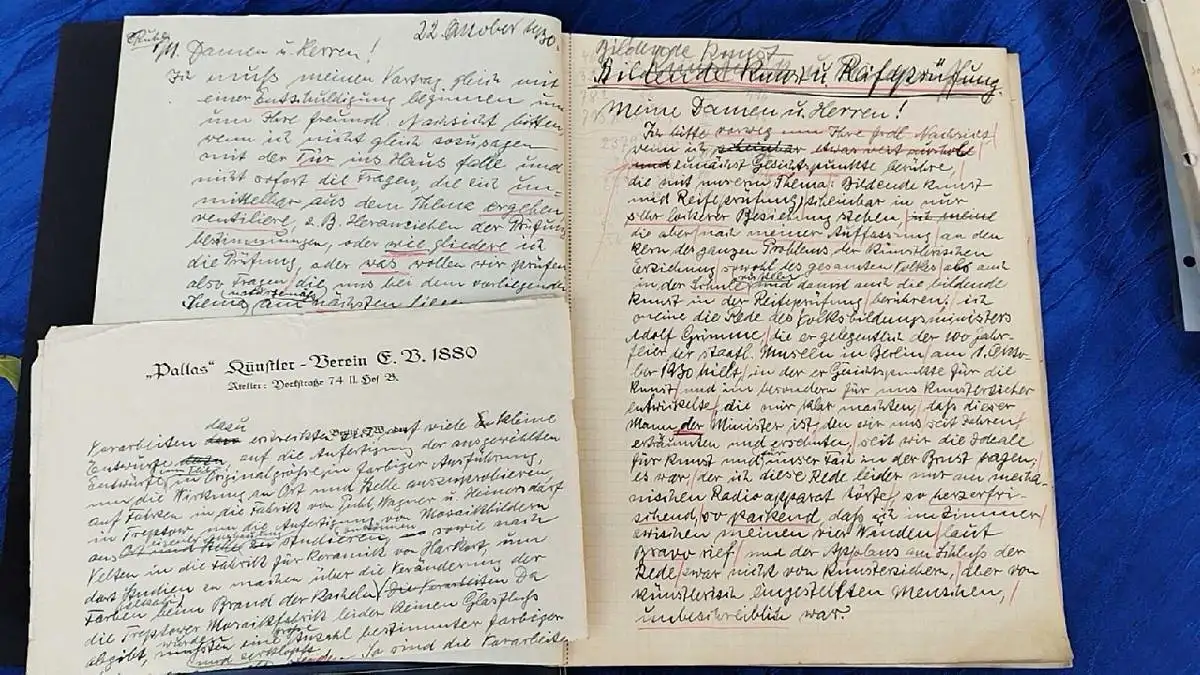 22. Oktober 1930.
M. Damen u. Herren!
Ich muß meinen Vortrag gleich mit
einer Entschuldigung beginnen und
um Ihre freundl. Nachsicht bitten,
wenn ich nicht gleich sozusagen
mit der Tür ins Haus falle und
nicht sofort die Fragen, die sich un-
mittelbar aus dem Thema ergeben,
ventiliere, z. B. Heranziehen der Prüfungs
bestimmungen, oder wie gliedere ich
die Prüfung, oder was wollen wir prüfen
also Fragen, die uns bei dem vorliegenden
Thema am nächsten liegen
„Pallas“ Künstler-Verein E. V. 1880
Atelier: Bockstraße 74 II. Hof
dazu
Vorarbeiten erstreckten sich auf viele kleine
Entwürfe, auf die Anfertigung der ausgewählten
Entwürfe in Originalgröße in farbiger Ausführung,
um die Wirkung an Ort und Stelle auszuprobieren,
auf Fahrten in die Fabrik von Puhl, Wagner u. Heinersdorf
in Treptow, um die Anfertigung von Mosaikbildern
aus zu studieren, sowie nach
Velten in die Fabrik für Keramik von Harkort, um
dort Studien zu machen über die Veränderung der
Farben beim Brand der Kacheln. (Die Vorarbeiten Da
die Treptower Mosaikfabrik leider keinen Glasfluß
abgibt, mußten eine große Anzahl bestimmter farbiger
und
So sind die Vorarbeiten
Bildende Kunst
Bildende Kunst u. Reifeprüfung.
Meine Damen u. Herren!
Ich bitte vorweg um Ihre frdl. Nachsicht,
wenn ich scheinbar etwas weit aushole
und zunächst Gesichtspunkte berühre,
die mit unserm Thema: Bildende Kunst
und Reifeprüfung, scheinbar in nur
sehr lockerer Beziehung stehen, ich meine
die aber nach meiner Auffassung an den
Kern des ganzen Problems der künstlerischen
Erziehung sowohl des gesamten Volkes als auch
in der Schule und damit auch die bildende
Kunst in der Reifeprüfung berühren; ich
meine die Rede des Volksbildungsministers
Adolf Grimme, die er gelegentlich der 100 Jahr-
feier der staatl. Museen in Berlin am 1. Okto-
ber 1930 hielt, in der er Gesichtspunkte für die
Kunst und im besondern für uns Kunsterzieher
entwickelte, die mir klar machten, daß dieser
Mann der Minister ist, den wir uns seit Jahren
erträumten und ersehnten, seit wir die Ideale
für Kunst und für unser Fach in der Brust tragen,
es war, der ich diese Rede leider nur am mecha-
nischen Radioapparat hörte, so herzerfri-
schend, so packend, daß ich im Zimmer
zwischen meinen vier Wänden laut
Bravo rief, und der Applaus am Schluß der
Rede, zwar nicht von Kunsterziehern, aber von
künstlerisch eingestellten Menschen,
unbeschreiblich war.